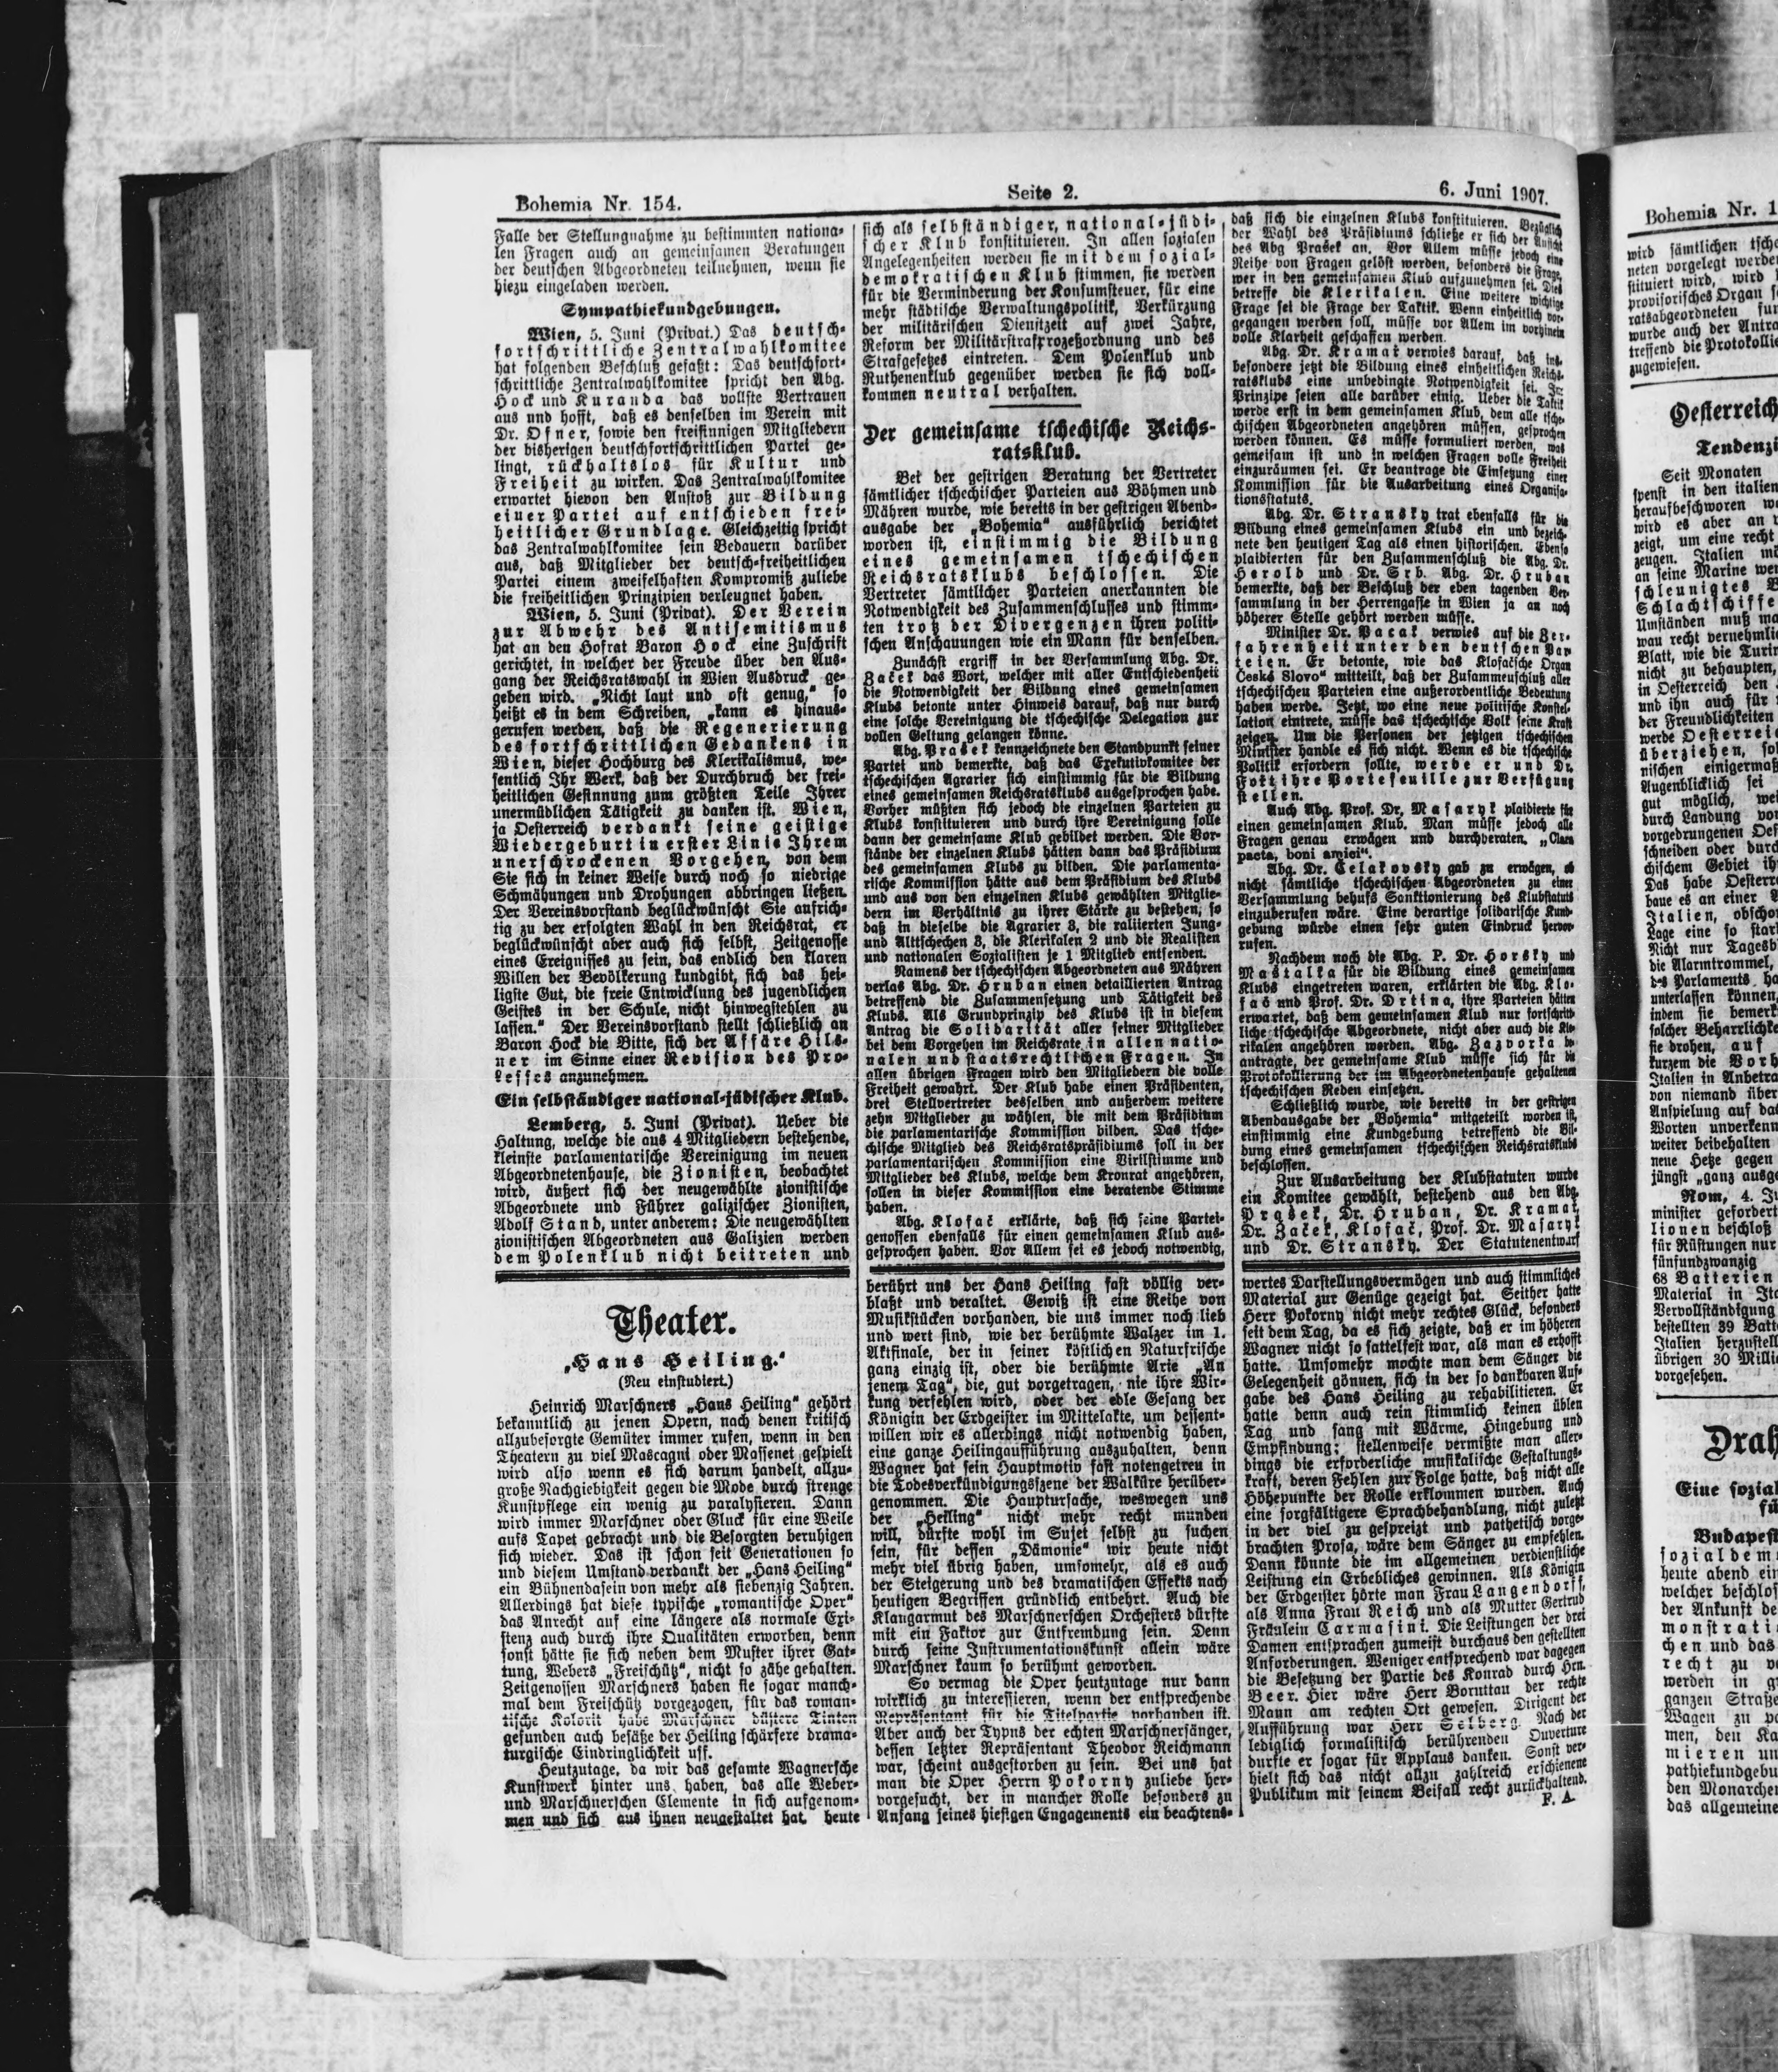 Bohemia Nr. 154.
Seite 2.
6. Juni 1907.
Falle der Stellungnahme zu bestimmten nationa-
len Fragen auch an gemeinsamen Beratungen
der deutschen Abgeordneten teilnehmen, wenn sie
hiezu eingeladen werden.
Sympathiekundgebungen.
Wien, 5. Juni (Privat.) Das deutsch-
fortschrittliche Zentralwahlkomitee
hat folgenden Beschluß gefaßt: Das deutschfort-
schrittliche Zentralwahlkomitee spricht den Abg.
Hock und Kuranda das vollste Vertrauen
aus und hofft, daß es denselben im Verein mit
Dr. Ofner, sowie den freisinnigen Mitgliedern
der bisherigen deutschfortschrittlichen Partei ge-
lingt, rückhaltslos für Kultur und
Freiheit zu wirken. Das Zentralwahlkomitee
erwartet hievon den Anstoß zur Bildung
einer Partei auf entschieden frei-
heitlicher Grundlage. Gleichzeitig spricht
das Zentralwahlkomitee sein Bedauern darüber
aus, daß Mitglieder der deutsch-freiheitlichen
Partei einem zweifelhaften Kompromiß zuliebe
die freiheitlichen Prinzipien verleugnet haben.
Wien, 5. Juni (Privat). Der Verein
zur Abwehr des Antisemitismus
hat an den Hofrat Baron Hock eine Zuschrift
gerichtet, in welcher der Freude über den Aus-
gang der Reichsratswahl in Wien Ausdruck ge-
geben wird. „Nicht laut und oft genug,“ so
heißt es in dem Schreiben, „kann es hinaus-
gerufen werden, daß die Regenerierung
des fortschrittlichen Gedankens in
Wien, dieser Hochburg des Klerikalismus, we-
sentlich Ihr Werk, daß der Durchbruch der frei-
heitlichen Gesinnung zum größten Teile Ihrer
unermüdlichen Tätigkeit zu danken ist. Wien,
ja Oesterreich verdankt seine geistige
Wiedergeburt in erster Linie Ihrem
unerschrockenen Vorgehen, von dem
Sie sich in keiner Weise durch noch so niedrige
Schmähungen und Drohungen abbringen ließen.
Der Vereinsvorstand beglückwünscht Sie aufrich-
tig zu der erfolgten Wahl in den Reichsrat, er
beglückwünscht aber auch sich selbst, Zeitgenosse
eines Ereignisses zu sein, das endlich den klaren
Willen der Bevölkerung kundgibt, sich das hei-
ligste Gut, die freie Entwicklung des jugendlichen
Geistes in der Schule, nicht hinwegstehlen zu
lassen.“ Der Vereinsvorstand stellt schließlich an
Baron Hock die Bitte, sich der Affäre Hils-
ner im Sinne einer Revision des Pro-
zesses anzunehmen.
Ein selbständiger national-jüdischer Klub.
Lemberg, 5. Juni (Privat). Ueber die
Haltung, welche die aus 4 Mitgliedern bestehende,
kleinste parlamentarische Vereinigung im neuen
Abgeordnetenhause, die Zionisten, beobachtet
wird, äußert sich der neugewählte zionistische
Abgeordnete und Führer galizischer Zionisten,
Adolf Stand, unter anderem: Die neugewählten
zionistischen Abgeordneten aus Galizien werden
dem Polenklub nicht beitreten und
sich als selbständiger, national-jüdi-
scher Klub konstituieren. In allen sozialen
Angelegenheiten werden sie mit dem sozial-
demokratischen Klub stimmen, sie werden
für die Verminderung der Konsumsteuer, für eine
mehr städtische Verwaltungspolitik, Verkürzung
der militärischen Dienstzeit auf zwei Jahre,
Reform der Militärstrafprozeßordnung und des
Strafgesetzes eintreten. Dem Polenklub und
Ruthenenklub gegenüber werden sie sich voll-
kommen neutral verhalten.
Der gemeinsame tschechische Reichs-
ratsklub.
Bei der gestrigen Beratung der Vertreter
sämtlicher tschechischer Parteien aus Böhmen und
Mähren wurde, wie bereits in der gestrigen Abend-
ausgabe der „Bohemia“ ausführlich berichtet
worden ist, einstimmig die Bildung
eines gemeinsamen tschechischen
Reichsratsklubs beschlossen. Die
Vertreter sämtlicher Parteien anerkannten die
Notwendigkeit des Zusammenschlusses und stimm-
ten trotz der Divergenzen ihren politi-
schen Anschauungen wie ein Mann für denselben.
Zunächst ergriff in der Versammlung Abg. Dr.
Začek das Wort, welcher mit aller Entschiedenheit
die Notwendigkeit der Bildung eines gemeinsamen
Klubs betonte unter Hinweis darauf, daß nur durch
eine solche Vereinigung die tschechische Delegation zur
vollen Geltung gelangen könne.
Abg. Prašek kennzeichnete den Standpunkt seiner
Partei und bemerkte, daß das Exekutivkomitee der
tschechischen Agrarier sich einstimmig für die Bildung
eines gemeinsamen Reichsratsklubs ausgesprochen habe.
Vorher müßten sich jedoch die einzelnen Parteien zu
Klubs konstituieren und durch ihre Vereinigung solle
dann der gemeinsame Klub gebildet werden. Die Vor-
stände der einzelnen Klubs hätten dann das Präsidium
des gemeinsamen Klubs zu bilden. Die parlamenta-
rische Kommission hätte aus dem Präsidium des Klubs
und aus von den einzelnen Klubs gewählten Mitglie-
dern im Verhältnis zu ihrer Stärke zu bestehen, so
daß in dieselbe die Agrarier 3, die raliierten Jung-
und Alttschechen 3, die Klerikalen 2 und die Realisten
und nationalen Sozialisten je 1 Mitglied entsenden.
Namens der tschechischen Abgeordneten aus Mähren
verlas Abg. Dr. Hruban einen detaillierten Antrag
betreffend die Zusammensetzung und Tätigkeit des
Klubs. Als Grundprinzip des Klubs ist in diesem
Antrag die Solidarität aller seiner Mitglieder
bei dem Vorgehen im Reichsrate in allen natio-
nalen und staatsrechtlichen Fragen. In
allen übrigen Fragen wird den Mitgliedern die volle
Freiheit gewahrt. Der Klub habe einen Präsidenten,
drei Stellvertreter desselben und außerdem weitere
zehn Mitglieder zu wählen, die mit dem Präsidium
die parlamentarische Kommission bilden. Das tsche-
chische Mitglied des Reichsratspräsidiums soll in der
parlamentarischen Kommission eine Virilstimme und
Mitglieder des Klubs, welche dem Kronrat angehören,
sollen in dieser Kommission eine beratende Stimme
haben.
Abg. Klofač erklärte, daß sich seine Partei-
genossen ebenfalls für einen gemeinsamen Klub aus-
gesprochen haben. Vor Allem sei es jedoch notwendig,
daß sich die einzelnen Klubs konstituieren. Bezüglich
der Wahl des Präsidiums schließe er sich der Ansicht
des Abg Prašek an. Vor Allem müsse jedoch eine
Reihe von Fragen gelöst werden, besonders die Frage,
wer in den gemeinsamen Klub aufzunehmen sei. Dies
betreffe die Klerikalen. Eine weitere wichtige
Frage sei die Frage der Taktik. Wenn einheitlich vor-
gegangen werden soll, müsse vor Allem im vorhinein
volle Klarheit geschaffen werden.
Abg. Dr. Kramař verwies darauf, daß ins-
besondere jetzt die Bildung eines einheitlichen Reichs-
ratsklubs eine unbedingte Notwendigkeit sei. Im
Prinzipe seien alle darüber einig. Ueber die Taktik
werde erst in dem gemeinsamen Klub, dem alle tsche-
chischen Abgeordneten angehören müssen, gesprochen
werden können. Es müsse formuliert werden, was
gemeisam ist und in welchen Fragen volle Freiheit
einzuräumen sei. Er beantrage die Einsetzung einer
Kommission für die Ausarbeitung eines Organisa-
tionsstatuts.
Abg. Dr. Stransky trat ebenfalls für die
Bildung eines gemeinsamen Klubs ein und bezeich-
nete den heutigen Tag als einen historischen. Ebenso
plaidierten für den Zusammenschluß die Abg. Dr.
Herold und Dr. Srb. Abg. Dr. Hruban
bemerkte, daß der Beschluß der eben tagenden Ver-
sammlung in der Herrengasse in Wien ja an noch
höherer Stelle gehört werden müsse.
Minister Dr. Pacak verwies auf die Zer-
fahrenheit unter den deutschen Par-
teien. Er betonte, wie das Klofačsche Organ
České Slovo“ mitteilt, daß der Zusammenschluß aller
tschechischen Parteien eine außerordentliche Bedeutung
haben werde. Jetzt, wo eine neue politische Konstel-
lation eintrete, müsse das tschechische Volk seine Kraft
zeigen. Um die Personen der jetzigen tschechischen
Minister handle es sich nicht. Wenn es die tschechische
Politik erfordern sollte, werde er und Dr.
Fořt ihre Portefeuille zur Verfügung
stellen.
Auch Abg. Prof. Dr. Masaryk plaidierte für
einen gemeinsamen Klub. Man müsse jedoch alle
Fragen genau erwägen und durchberaten. „Clara
pacta, boni amici“.
Abg. Dr. Čelakovsky gab zu erwägen, ob
nicht sämtliche tschechischen Abgeordneten zu einer
Versammlung behufs Sanktionierung des Klubstatuts
einzuberufen wäre. Eine derartige solidarische Kund-
gebung würde einen sehr guten Eindruck hervor-
rufen.
Nachdem noch die Abg. P. Dr. Horsky und
Mastalka für die Bildung eines gemeinsamen
Klubs eingetreten waren, erklärten die Abg. Klo-
fač und Prof. Dr. Drtina, ihre Parteien hätten
erwartet, daß dem gemeinsamen Klub nur fortschritt-
liche tschechische Abgeordnete, nicht aber auch die Kle-
rikalen angehören werden. Abg. Zazvorka be-
antragte, der gemeinsame Klub müsse sich für die
Protokollierung der im Abgeordnetenhause gehaltenen
tschechischen Reden einsetzen.
Schließlich wurde, wie bereits in der gestrigen
Abendausgabe der „Bohemia“ mitgeteilt worden ist,
einstimmig eine Kundgebung betreffend die Bil-
dung eines gemeinsamen tschechischen Reichsratsklubs
beschlossen.
Zur Ausarbeitung der Klubstatuten wurde
ein Komitee gewählt, bestehend aus den Abg.
Prašek, Dr. Hruban, Dr. Kramař,
Dr. Začek, Klofač, Prof. Dr. Masaryk
und Dr. Stransky. Der Statutenentwurf
Theater.
„Hans Heiling.“
(Neu einstudiert.)
Heinrich Marschners „Hans Heiling“ gehört
bekanntlich zu jenen Opern, nach denen kritisch
allzubesorgte Gemüter immer rufen, wenn in den
Theatern zu viel Mascagni oder Massenet gespielt
wird also wenn es sich darum handelt, allzu-
große Nachgiebigkeit gegen die Mode durch strenge
Kunstpflege ein wenig zu paralysieren. Dann
wird immer Marschner oder Gluck für eine Weile
aufs Tapet gebracht und die Besorgten beruhigen
sich wieder. Das ist schon seit Generationen so
und diesem Umstand verdankt der „Hans Heiling“
ein Bühnendasein von mehr als siebenzig Jahren.
Allerdings hat diese typische „romantische Oper“
das Anrecht auf eine längere als normale Exi-
stenz auch durch ihre Qualitäten erworben, denn
sonst hätte sie sich neben dem Muster ihrer Gat-
tung, Webers „Freischütz“, nicht so zähe gehalten.
Zeitgenossen Marschners haben sie sogar manch-
mal dem Freischütz vorgezogen, für das roman-
tische Kolorit habe Marschner düstere Tinten
gefunden auch besäße der Heiling schärfere drama-
turgische Eindringlichkeit usf.
Heutzutage, da wir das gesamte Wagnersche
Kunstwerk hinter uns haben, das alle Weber-
und Marschnerschen Elemente in sich aufgenom-
men und sich aus ihnen neugestaltet hat, heute
berührt uns der Hans Heiling fast völlig ver-
blaßt und veraltet. Gewiß ist eine Reihe von
Musikstücken vorhanden, die uns immer noch lieb
und wert sind, wie der berühmte Walzer im 1.
Aktfinale, der in seiner köstlichen Naturfrische
ganz einzig ist, oder die berühmte Arie „An
jenem Tag“, die, gut vorgetragen, nie ihre Wir-
kung verfehlen wird, oder der edle Gesang der
Königin der Erdgeister im Mittelakte, um dessent-
willen wir es allerdings nicht notwendig haben,
eine ganze Heilingaufführung auszuhalten, denn
Wagner hat sein Hauptmotiv fast notengetreu in
die Todesverkündigungsszene der Walküre herüber-
genommen. Die Hauptursache, weswegen uns
der „Heiling“ nicht mehr recht munden
will, dürfte wohl im Sujet selbst zu suchen
sein, für dessen „Dämonie“ wir heute nicht
mehr viel übrig haben, umsomehr, als es auch
der Steigerung und des dramatischen Effekts nach
heutigen Begriffen gründlich entbehrt. Auch die
Klangarmut des Marschnerschen Orchesters dürfte
mit ein Faktor zur Entfremdung sein. Denn
durch seine Instrumentationskunst allein wäre
Marschner kaum so berühmt geworden.
So vermag die Oper heutzutage nur dann
wirklich zu interessieren, wenn der entsprechende
Repräsentant für die Titelpartie vorhanden ist.
Aber auch der Typus der echten Marschnersänger,
dessen letzter Repräsentant Theodor Reichmann
war, scheint ausgestorben zu sein. Bei uns hat
man die Oper Herrn Pokorny zuliebe her-
vorgesucht, der in mancher Rolle besonders zu
Anfang seines hiesigen Engagements ein beachtens-
wertes Darstellungsvermögen und auch stimmliches
Material zur Genüge gezeigt hat. Seither hatte
Herr Pokorny nicht mehr rechtes Glück, besonders
seit dem Tag, da es sich zeigte, daß er im höheren
Wagner nicht so sattelfest war, als man es erhofft
hatte. Umsomehr mochte man dem Sänger die
Gelegenheit gönnen, sich in der so dankbaren Auf-
gabe des Hans Heiling zu rehabilitieren. Er
hatte denn auch rein stimmlich keinen üblen
Tag und sang mit Wärme, Hingebung und
Empfindung; stellenweise vermißte man aller-
dings die erforderliche musikalische Gestaltungs-
kraft, deren Fehlen zur Folge hatte, daß nicht alle
Höhepunkte der Rolle erklommen wurden. Auch
eine sorgfältigere Sprachbehandlung, nicht zuletzt
in der viel zu gespreizt und pathetisch vorge-
brachten Prosa, wäre dem Sänger zu empfehlen.
Dann könnte die im allgemeinen verdienstliche
Leistung ein Erbebliches gewinnen. Als Königin
der Erdgeister hörte man Frau Langendorff,
als Anna Frau Reich und als Mutter Gertrud
Fräulein Carmasini. Die Leistungen der drei
Damen entsprachen zumeist durchaus den gestellten
Anforderungen. Weniger entsprechend war dagegen
die Besetzung der Partie des Konrad durch Hrn.
Beer. Hier wäre Herr Boruttau der rechte
Mann am rechten Ort gewesen. Dirigent der
Aufführung war Herr Selberg. Nach der
lediglich formalistisch berührenden Ouverture
durfte er sogar für Applaus danken. Sonst ver-
hielt sich das nicht allzu zahlreich erschienene
Publikum mit seinem Beifall recht zurückhaltend.
F. A.
Bohemia Nr. 1
wird sämtlichen
neten vorgelegt
stituiert wird, wird
provisorisches Organ
ratsabgeordneten
wurde auch der
treffend die
zugewiesen.
Oesterreich
Seit Monaten
spenst in den
heraufbeschworen
wird es aber an
zeigt, um eine recht
zeugen. Italien
an seine Marine
schleunigtes
Schlachtschiffe
Umständen muß
wau recht
Blatt, wie die
nicht zu behaupten,
in Oesterreich den
und ihn auch für
der Freundlichkeiten
werde
überziehen,
nischen
Augenblicklich sei
gut möglich,
durch Landung
vorgedrungenen
schneiden oder durch
chischem Gebiet
Das habe
baue es an einer
Italien,
Lage eine so
Nicht nur
die Alarmtrommel,
des Parlaments
unterlassen können,
indem sie
solcher
sie drohen, auf
kurzem die
Italien in
von niemand
Anspielung auf
Worten
weiter beibehalten
neue Hetze gegen
jüngst „ganz
Rom, 4.
minister
lionen beschloß
für Rüstungen nur
fünfundzwanzig
68 Batterien
Material in
Vervollständigung
bestellten 39
Italien
übrigen 30
vorgesehen.
Eine
Budapest
heute abend
welcher
der Ankunft
chen und das
recht zu
werden in
ganzen
Wagen zu
men, den
mieren
den Monarchen
das allgemeine